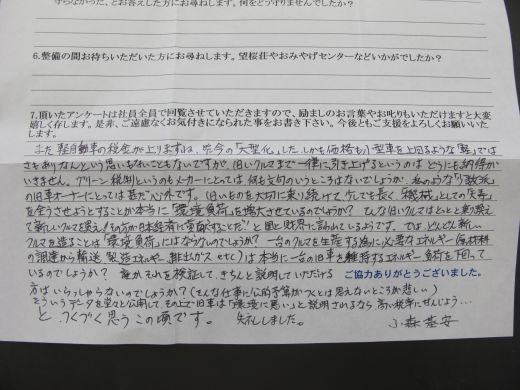 守らなかった、とお答えした方にお尋ねします。何をどう守りませんでしたか？
6.整備の間お待ちいただいた方にお尋ねします。望桜荘やおみやげセンターなどいかがでしたか？
7.頂いたアンケートは社員全員で回覧させていただきますので、励ましのお言葉やお叱りもいただけますと大変
嬉しく存します。是非、ご遠慮なくお気付きになられた事をお書き下さい。今後ともご支援をよろしくお願いいた
します。
また軽自動車の税金が上りますね、昨今の"大型化"した、しかも価格も小型車を上回るような「軽」では
さもありなんという思いもないこともないですが、旧いクルマまで一律に引き上げるというのはどうにも納得が
いきません。グリーン税制というのもメーカーにとっては何も文句のいうところはないでしょうが、私のような"少数派"
の旧車オーナーにとっては甚だ心外です。旧いものを大切に乗り続けて、少しでも長く「機械」としての「天寿」
を全うさせようとすることが本当に「環境負荷」を増大させているのでしょうか？ ひな旧いクルマはとっとと乗り換え
て新しいクルマを買え！その方が日本経済に貢献することだ"と国と財界に言われているようです。では どんどん新しい
クルマを造ることは「環境負荷」にはならないのでしょうか？ 一台のクルマを生産する為に必要なエネルギー（原材料
の調達から輸送、製造エネルギー、排出ガス etc）は本当に一台の旧車を維持するエネルギー負荷を下回って
いるのでしょうか？ 誰かそれを検証して、きちんと説明していただける
ご協力ありがとうございました。
方はいらっしゃらないのでしょうか？（そんな仕事に公的予算がつくとは思えないところが悲しい）
そういうデータを堂々と公開して、その上で旧車は「環境に悪い」と説明されるなら、高い税率にせんじょう…
と、つくづく思うこの頃です。 失礼しました。
小森基安